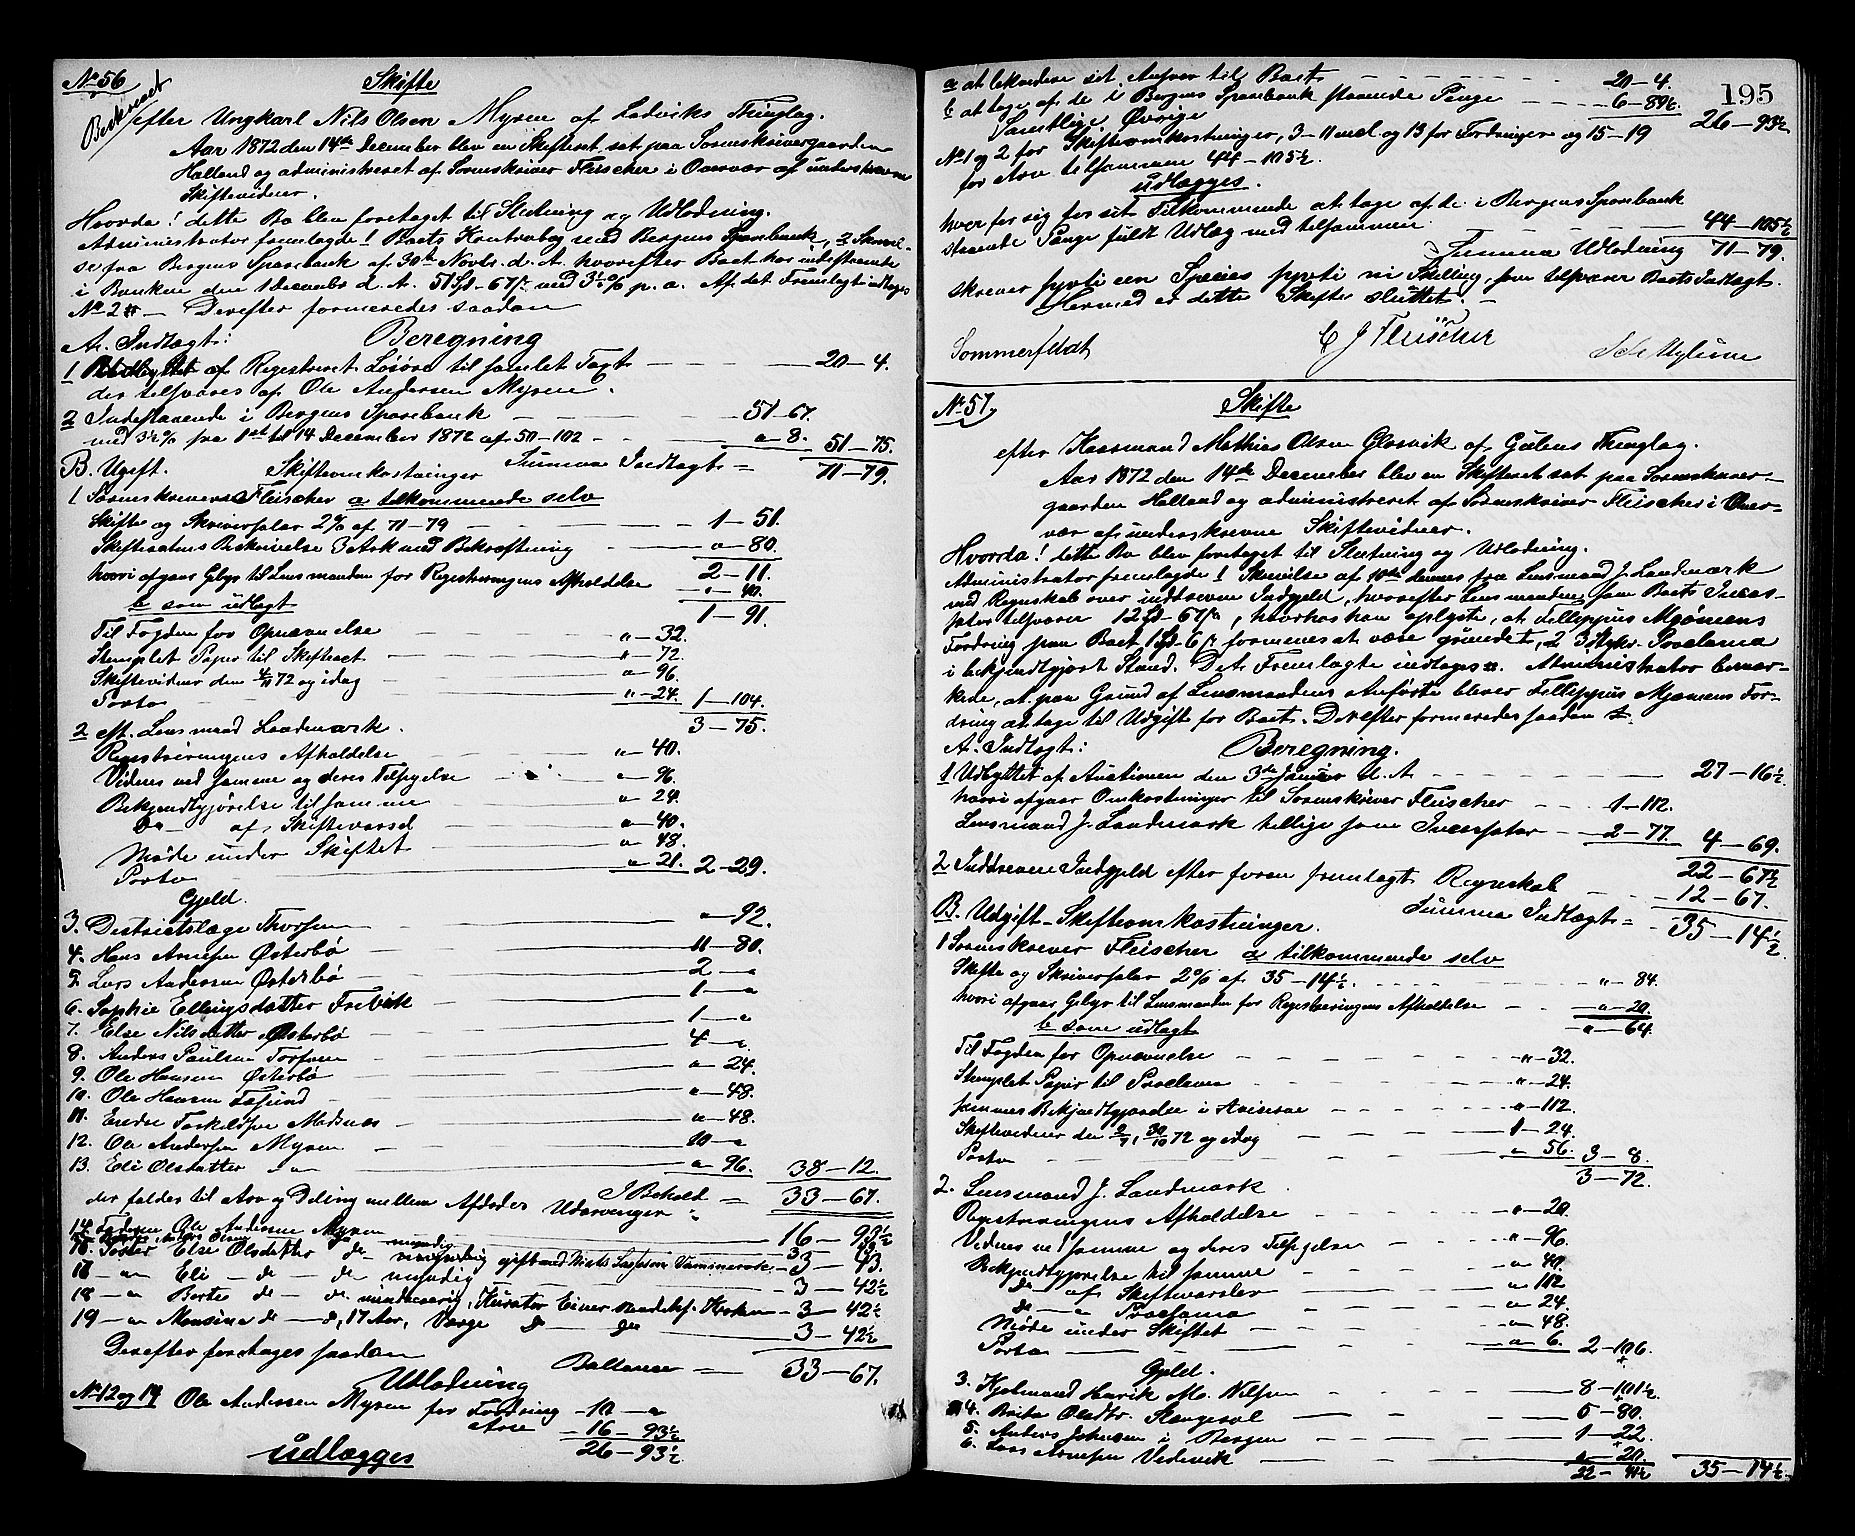 No 56
Skifte
Beskrevet
efter Ungkarl Nils Olsen Myren af Ladviks Thinglag.
Aar 1872 den 14de December blev en Skifteret sat paa Sorenskrivergaarden
Halland og administreret af Sorenskriver Fleischer i Overvær af underskrevne
Skiftevidner.
Hvorda! dette Bo blev foretaget til Slutning og Udlodning.
Administrator fremlagde 1 Boets Kontrabog med Bergens Sparebank, 2 Skrivel-
se fra Bergens Sparebank af 30te Novbr. d. A. hvorefter Boet har indestaaende
i Banken den 1 December d. A. 51 Sp - 67 ß med 3½ % p. a. Af det Fremlagte indtages
No 2 — Derefter formeredes saadan
Beregning
A. Indtægt:
1 af Registreret Løsøre til samlet Taxt — 20 - 4.
der tilsvares af Ole Andersen Myren.
2 Indestaaende i Bergens Sparebank — 51 - 67.
med 3½ % fra 1ste til 14 December 1872 af 50 - 102 — " - 8. 51 - 75.
Summa Indtægt = 71 - 79.
B. Ugift. Skifteomkostninger
1 Sorenskriver Fleischer a tilkommende selv
Skifte og Skriversalær 2 % af 71 - 79 — 1 - 51.
Skifteaktens Beskrivelse 3 Ark med Bekræftning — " - 80.
2 - 11.
hvori afgaar Gebyr til Lensmanden for Registreringens Afholdelse " - 40.
1 - 91.
b som udlagt
Til Fogden for Opnævnelse — " - 32.
Stemplet Papir til Skifteact — " - 72.
Skiftevidner den 72 og idag — " - 96.
Porto — " - 24. 1 - 104.
3 - 75.
2 Lensmand Landmark.
Registreringens Afholdelse — " - 40.
Vidner ved Samme og deres Tilsigelse — " - 96.
Bekjendtgjørelse til samme — " - 24.
Do af Skiftevarsel — " - 40.
Møde under Skiftet — " - 48.
Porto — " - 21. 2 - 29.
Gjeld.
3. Districtslæge Thorsen — " - 92.
4. Hans Arnesen Østerbø — 11 - 80.
5. Lars Andersen Østerbø — 2 - "
6. Sophie Ellingsdatter — 1 - "
7. Else Nilsdatter Østerbø — 1 - "
8. Anders Paulsen Torsnes — 4 - "
9. Ole Hansen Østerbø — " - 24.
10. Ole Hansen — " - 48.
11. Endre Torkildsen — " - 48.
12. Ole Andersen Myren — 10 - "
13. Eli Olsdatter " — " - 96. 38 - 12.
I Behold = 33 - 67.
der falder til Arv og Deling mellem Afdødes Udarvinger:
14. Faderen Ole Andersen Myren — 16 - 93½
Else Olsdatter gift med — 3 - 43.
Eli — do — do myndig — 3 - 42½
18 - " Berte do — do mindreaarig, Kurator Einer — 3 - 42½
19 - " Monsine do — do, 17 Aar, Værge do — do — 3 - 42½
Ballance — 33 - 67.
Derefter foretages saadan
Udlodning
No 12 og 14 Ole Andersen Myren for Fordring - 10 - "
Arv - 16 - 93½
26 - 93½
Udlægges
195
a at bekvedere sit Ansvar til Boets — 20 - 4.
b at tage af de i Bergens Sparebank staaende Penge — 6 - 89½
26 - 93½
Samtlige Øvrige
No 1 og 2 for Skifteomkostninger, 3 - 11 incl og 13 for Fordringer og 15 - 19
for Arv tilsammen 44 - 105½.
Udlægges.
hver for sig for sit Tilkommende at tage af de i Bergens Sparebank
staaende Penge fuldt Udlæg med tilsammen — 44 - 105½
Summa Udlodning 71 - 79.
skriver syvti een Species syvti ni Skilling, som tilsvarer Boets Indtægt.
Hermed er dette Skifte sluttet. —
Sommerfeldt
C J Fleischer
No 57,
Skifte
efter Kaarmand Mathias Olsen Glosvik af Gulens Thinglag.
Aar 1872 den 14de December blev en Skifteret sat paa Sorenskriver-
gaarden Halland og administreret af Sorenskriver Fleischer i Over-
vær af underskrevne Skiftevidner.
Hvorda! dette Bo blev foretaget til Slutning og Udlodning.
Administrator fremlagde 1 Skrivelse af 10de dennes fra Lensmand J. Landmark
med Regnskab over inddreven Indgjeld, hvorefter Lensmanden som Boets Incas-
sator tilsvarer 12 Sp - 67 ß, hvorhos han oplyste, at Fillippus Mjømens
Fordring paa Boet 1 Sp - 6 ß formenes at være grundet, 2 3 Stykr. Proclama
i bekjendtgjort Stand. Det Fremlagte indtages. Administrator bemær-
kede, at paa Grund af Lensmandens Anførte bliver Fillippus Mjømens For-
dring at tage til Udgift for Boet. Derefter formeredes saadan
Beregning.
A. Indtægt:
1 Udbyttet af Auctionen den 3de Januar d. A — 27 - 16½
hvori afgaar Omkostninger til Sorenskriver Fleischer — 1 - 112.
Lensmand J. Landmark tillige som Incassator — 2 - 77. 4 - 69.
22 - 67½
2 Inddreven Indgjeld efter foran fremlagt Regnskab — 12 - 67.
Summa Indtægt = 35 - 14½
B. Udgift - Skifteomkostninger.
1 Sorenskriver Fleischer a tilkommende selv
Skifte og Skriversalær 2 % af 35 - 14½. — " - 84.
hvori afgaar Gebyr til Lensmanden for Registreringens Afholdelse — " - 20.
" - 64.
b som udlagt
Til Fogden for Opnævnelse — " - 32.
Stemplet Papir til Proclama — " - 24.
sammes Bekjendtgjørelse i Aviserne — " - 112.
Skiftevidner den 72 og idag — 1 - 24.
Porto — " - 56. 3 - 8.
3 - 72.
2. Lensmand J. Landmark
Registreringens Afholdelse — " - 20.
Vidner ved samme og deres Tilsigelse — " - 96.
Bekjendtgjørelse til samme — " - 40.
do — af Skiftevarsler — " - 112
do — " Proclama — " - 24.
Møde under Skiftet — " - 48.
Porto — " - 6. 2 - 106.
Gjeld.
3. Kjøbmand Henrik M. Nilsen — 8 - 101½.
4. Berte Olsdtr. — 5 - 80.
5. Anders Johnsen i Bergen — 1 - 22.
6. Lars Arnesen — " - 20.
22 - 41½ 35 - 14½.